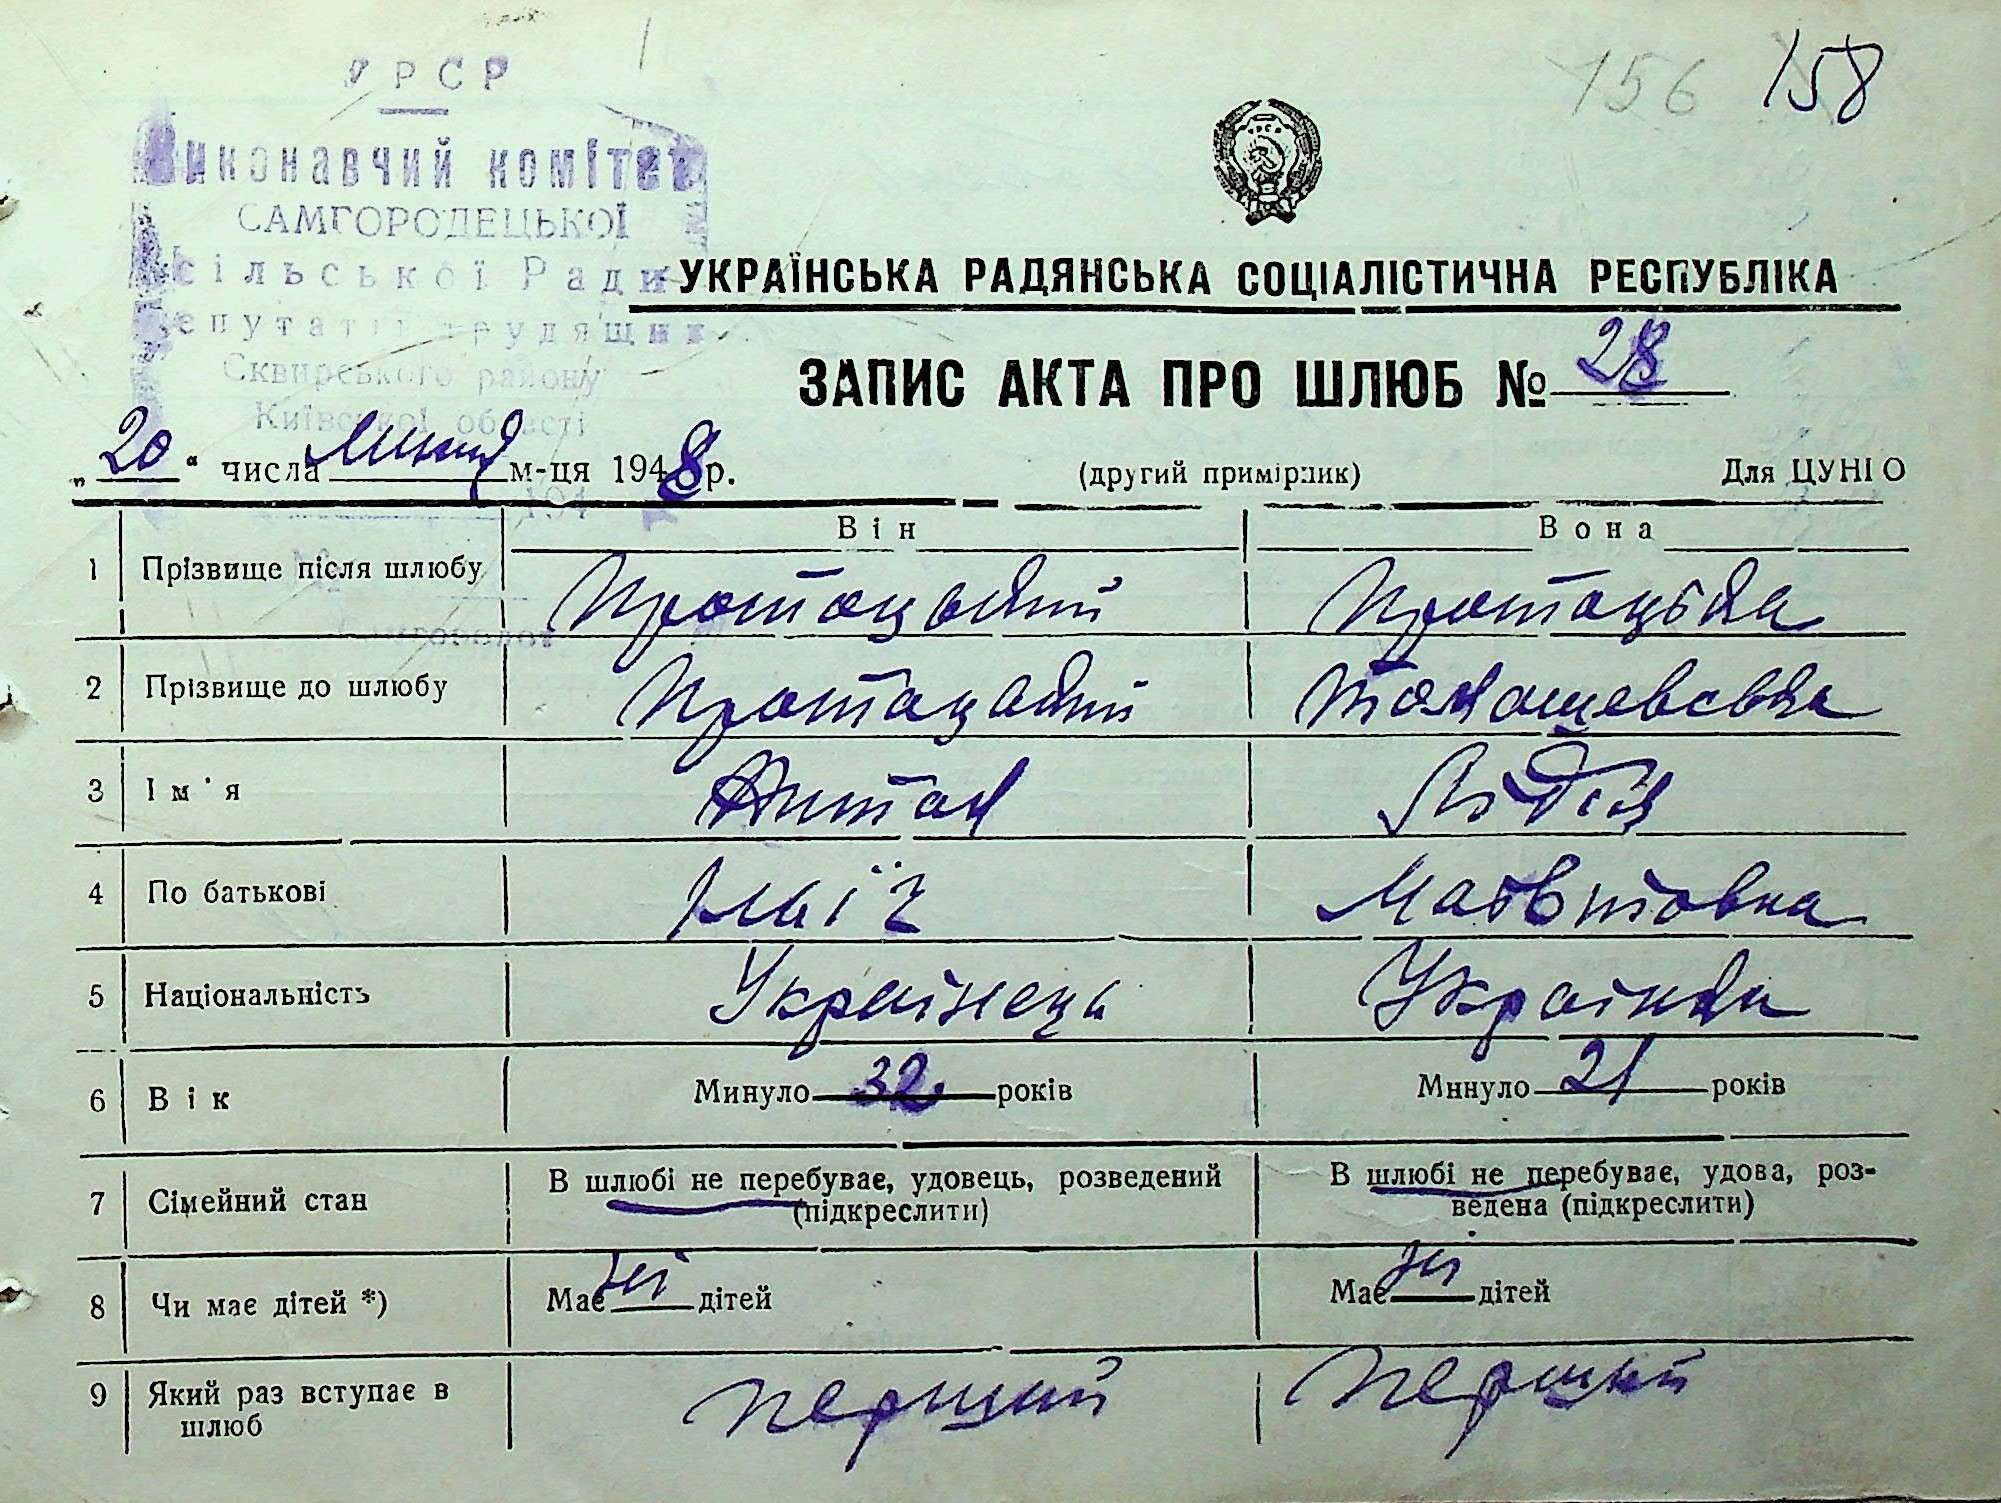 УРСР
Виконавчий комітет
САМГОРОДЕЦЬКОЇ
сільської Ради
депутатів трудящих
Сквирського району
Київської області
194
156 158
УКРАЇНСЬКА РАДЯНСЬКА СОЦІАЛІСТИЧНА РЕСПУБЛІКА
ЗАПИС АКТА ПРО ШЛЮБ № 28
„20“ числа липня м-ця 1948 р. (другий примірник) Для ЦУНГО
Він Вона
1 Прізвище після шлюбу Протоцький Протоцька
2 Прізвище до шлюбу Протоцький Томашевська
3 Ім'я Антон Лідія
4 По батькові Ілліч Матвіївна
5 Національність Українець Українка
6 Вік Минуло 32 років Минуло 21 років
7 Сімейний стан В шлюбі не перебуває, удовець, розведений (підкреслити) В шлюбі не перебуває, удова, роз-
ведена (підкреслити)
8 Чи має дітей *) Має ні дітей Має ні дітей
9 Який раз вступає в шлюб перший перший